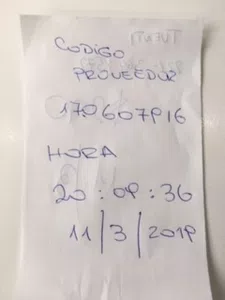 CODIGO
PROVEEDOR
170607916
HORA
20 : 09 : 36
11/3/2019